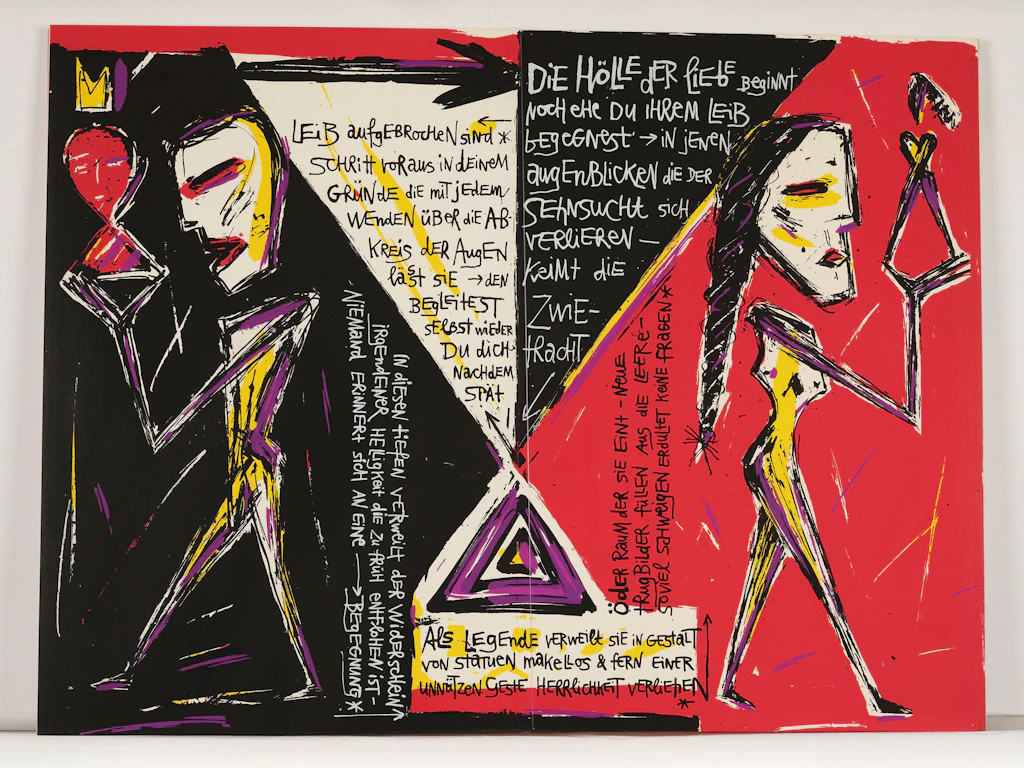 DIE HÖLLE DER LIEBE BEGINNT
NOCH EHE DU IHREM LEIB
BEGEGNEST → IN JENEN
AUGENBLICKEN DIE DER
SEHNSUCHT SICH
VERLIEREN —
KEIMT DIE
ZWIE-
TRACHT
LEIB AUFGEBROCHEN SIND *
SCHRITT VORAUS IN DEINEM
GRÜNDE DIE MIT JEDEM
WENDEN ÜBER DIE AB-
KREIS DER AUGEN
LÄST SIE → DEN
BEGLEITEST
SELBST WIEDER
DU DICH
NACHDEM
SPÄT
IN DIESEN TIEFEN VERWEILT DER WIDERSCHEIN
IRGENDEINER HEILIGKEIT DIE ZU FRÜH ENTFLOHEN IST -
NIEMAND ERINNERT SICH AN EINE → BEGEGNUNG *
ÖDER RAUM DER SIE EINT - NEUE
TRUGBILDER FÜLLEN AUS DIE LEERE -
SOVIEL SCHWEIGEN ERDULTET KEINE FRAGEN *
ALS LEGENDE VERWEILT SIE IN GESTALT
VON STATUEN MAKELLOS & FERN EINER
UNNÜTZEN GESTE HERRLICHKEIT VERLIEHEN *